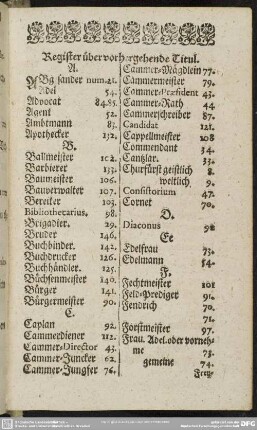 Register über vorhergehende Titul.
A.
Abgesandter num. 21.
Adel 54.
Advocat 84.85.
Agent 52.
Ambtmann 83.
Apothecker 132.
B.
Ballmeister 102.
Barbierer 133.
Baumeister 106.
Bauverwalter 107.
Bereiter 103.
Bibliothecarius. 98.
Brigadier. 29.
Bruder 146.
Buchbinder. 142.
Buchdrucker 126.
Buchhändler. 125.
Büchsenmeister 140.
Bürger 141.
Bürgermeister 90.
C.
Caplan 92.
Cammerdiener 112.
Cammer-Director 43.
Cammer-Juncker 62.
Cammer-Jungfer 76.
Cammer-Mägdlein 77.
Cammermeister 79.
Cammer-Præsident 43.
Cammer-Rath 44
Cammerschreiber 87.
Candidat 121.
Cappellmeister 108
Commendant 34.
Cantzlar. 33.
Churfürst geistlich 8.
weltlich 9.
Consistorium 47.
Cornet 70.
D.
Diaconus 92
E.
Edelfrau 73.
Edelmann 54.
F.
Fechtmeister 101
Feld-Prediger 91.
Fendrich 70.
71.
Forstmeister 97.
Frau. Adel. oder vorneh-
me 73.
gemeine 74.
Frey-